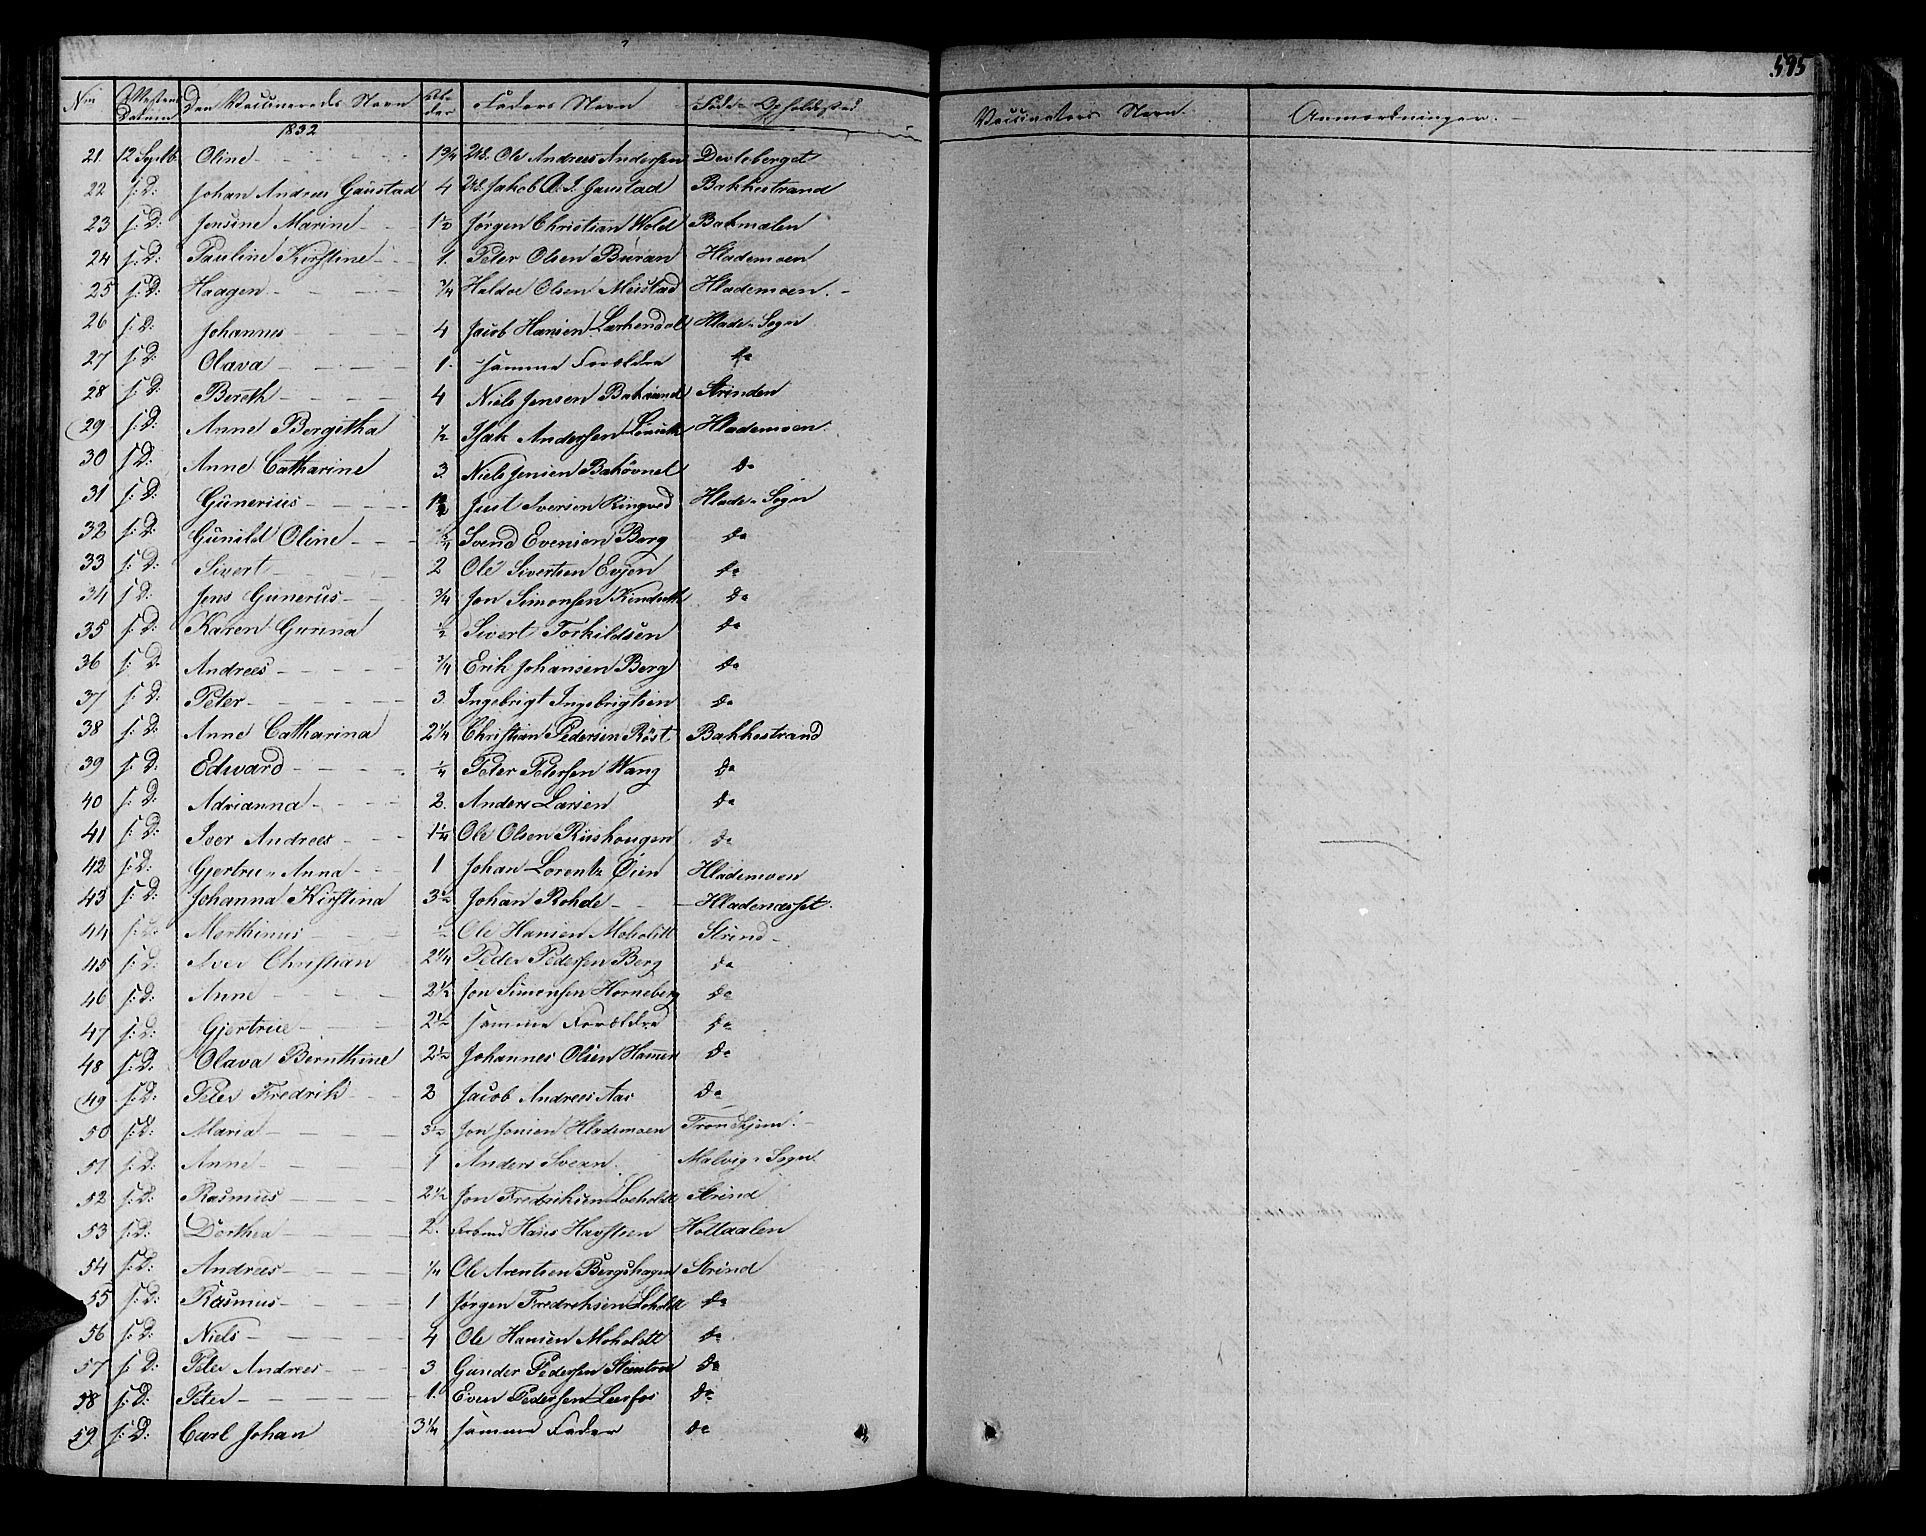 595
No Attestens Datum Den Vaccineredes Navn Alder Faders Navn Føde- Opholdssted Vaccinators Navn. Anmærkninger.
1832
21 12 Septb Oline 1 3/4 Ole Andreas Andersen Devleberget
22 s: D: Johan Andreas Gaustad 4 Jakob A. J. Gaustad Bakkestrand
23 s: D: Jensine Marine 1 1/2 Jørgen Christian Wold Bakmølen
24 s: D: Pauline Kirstine 1. Peter Olsen Buran Hlademoen
25 s: D: Haagen 3/4 Haldoe Olsen Mustad Hlademoen.
26 s: D: Johannes 4 Jacob Hansen Lerkendal Hlade-Sogn
27 s: D: Olava 1. samme Forældre do
28 s: D: Bereth 4 Niels Jensen Strinden
29 s: D: Anne Bergitha 1/2 Isak Andersen Hlademoen.
30 s: D: Anne Catharine 3 Niels Jensen Do
31 s: D: Gunerius Just Iversen Ringved Hlade-Sogn
32 s: D: Gunild Oline 3/4 Svend Evensen Berg do
33 s: D: Sivert 2 Ole Sivertsen Evjen do
34 s: D: Jens Gunerus 3/4 Jon Simonsen Do
35 s: D: Karen Gurina 1/2 Sivert Torkildsen do
36 s: D: Andrees 3/4 Erik Johansen Berg do
37 s: D: Peter 3. Ingebrigt Ingebrigtsen do
38 s: D: Anne Catharina 2 1/4 Christian Pedersen Røst Bakkestrand
39 s: D: Edward 1/4 Peter Petersen Wang Do
40 s: D: Adrianna 2. Anders Larsen Do
41 s: D: Iver Andrees 1 1/4 Ole Olsen Riishougen do
42 s: D: Gjertru-Anna 1 Johan Lorentz Øien Hlademoen
43 s: D: Johanna Kirstina 3 1/2 Johan Rohde Hladenæsset.
44 s: D: Marthinus 1/2 Ole Hansen Moholdt Strind
45 s: D: Iver Christian 2 1/4 Peder Pedersen Berg do
46 s: D: Anne 2 1/2 Jon Simonsen Horneberg do
47 s: D: Gjertrue 2 1/2 samme Forældre do
48 s: D: Olava Bernthine 2 1/2 Johannes Olsen Hammer do
49 s: D: Peter Fredrik 2 Jacob Andrees Aas do
50 s: D: Maria 3 1/2 Jon Jonsen Hlademoen Trondhjem.
51 s: D: Anne 1 Anders Svean. Malvig-Sogn
52 s: D: Rasmus 2 1/2 Jon Fredriksen Loeholdt Strind
53 s: D: Dorthea 2. Hans Havsteen Holtaalen
54 s: D: Andreas 1/4 Ole Arentsen Bergshagen Strind
55 s: D: Rasmus 1 Jørgen Fredreksen Loholdt do
56 s: D: Niels 4 Ole Hansen Moholdt do
57 s: D: Peter Andrees 3 Gunder Pedersen do
58 s: D: Peter 1. Even Pedersen Leerfos do
59 s: D: Carl Johan 3 1/4 samme Fader do